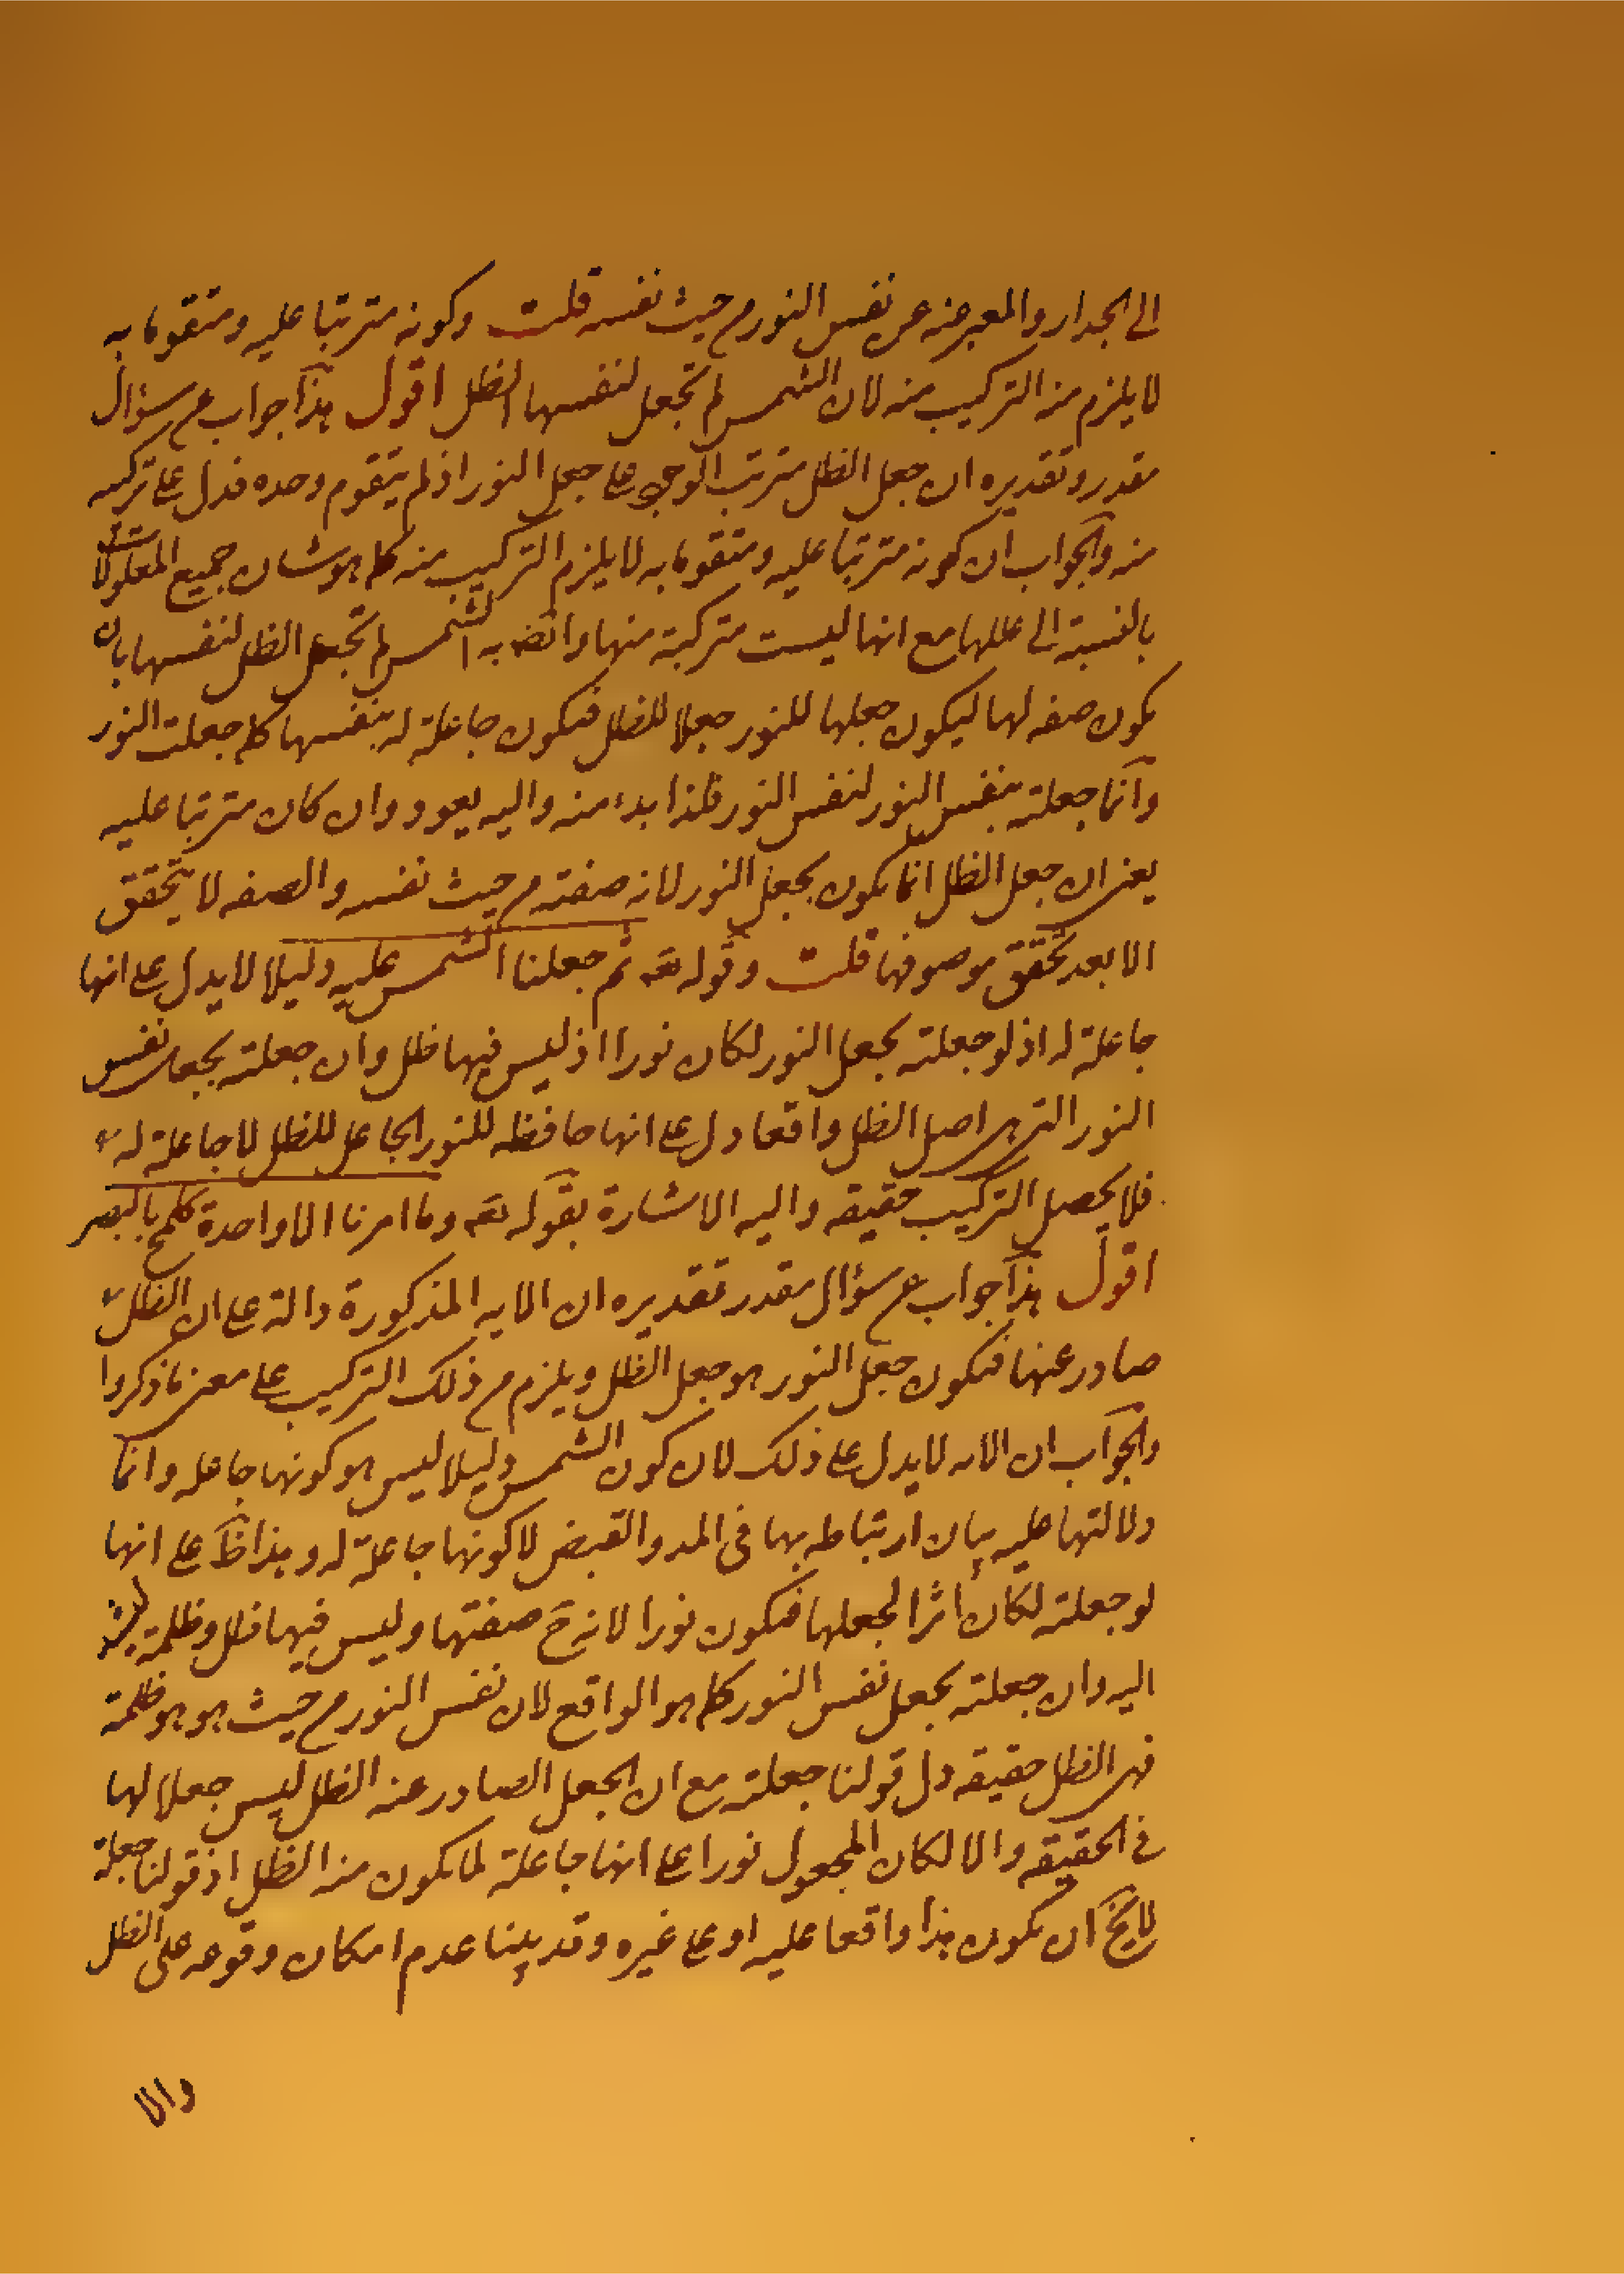 الى الجدار والمعبر عنه عن نفس النور من حيث نفسه قلت وكونه مترتبا عليه ومتقوما به
لا يلزم منه التركيب منه لان الشمس لم تجعل لنفسها الظل اقول هذا جواب عن سؤال
مقدر وتقديره ان جعل الظل مترتب الوجود على جعل النور اذ لم يتقوم وحده فدل على تركبه
منه والجواب ان كونه مترتبا عليه ومتقوما به لا يلزم التركيب منه كما هو شان جميع المعلولات
بالنسبة الى عللها مع انها ليست متركبة منها وايضا الشمس لم تجعل الظل لنفسها بان
يكون صفه لها ليكون جعلها للنور جعلا للظل فتكون جاعلة له بنفسها كما جعلت النور
وانما جعلته بنفس النور لنفس النور فلذا بدء منه واليه يعود وان كان مترتبا عليه
يعنى ان جعل الظل انما يكون بجعل النور لانه صفته من حيث نفسه والصفه لا يتحقق
الا بعد تحقق موصوفها قلت وقوله تعه ثم جعلنا الشمس عليه دليلا لا يدل على انها
جاعلة له اذ لو جعلته بجعل النور لكان نورا اذ ليس فيها ظل وان جعلته بجعل نفس
النور التى هى اصل الظل واقعا دل على انها حافظه للنور الجاعل للظل لا جاعلة له
فلا يحصل التركيب حقيقه واليه الاشارة بقوله تعه وما امرنا الا واحدة كلمح بالبصر
اقول هذا جواب عن سؤال مقدر تقديره ان الايه المذكورة دالة على ان الظل
صادر عنها فتكون جعل النور هو جعل الظل ويلزم من ذلك التركيب على معنى ما ذكروا
والجواب ان الايه لا يدل على ذلك لان كون الشمس دليلا ليس هو كونها جاعله وانما
دلالتها عليه بيان ارتباطه بها فى المد والقبض لا كونها جاعلة له وهذا ظ على انها
لو جعلته لكان اثرا لجعلها فتكون نورا لانه ح صفتها وليس فيها ظل وظلمة
اليه وان جعلته بجعل نفس النور كما هو الواقع لان نفس النور من حيث هو هو ظلمة
فهى الظل حقيقه دل قولنا جعلته مع ان الجعل الصادر عنه الظل ليس جعلا لها
فى الحقيقه والا لكان المجعول نورا على انها جاعلة لما يكون منه الظل اذ قولنا جعلته
لا يخ ان يكون هذا واقعا عليه او على غيره وقد بينا عدم امكان وقوعه على الظل
والا